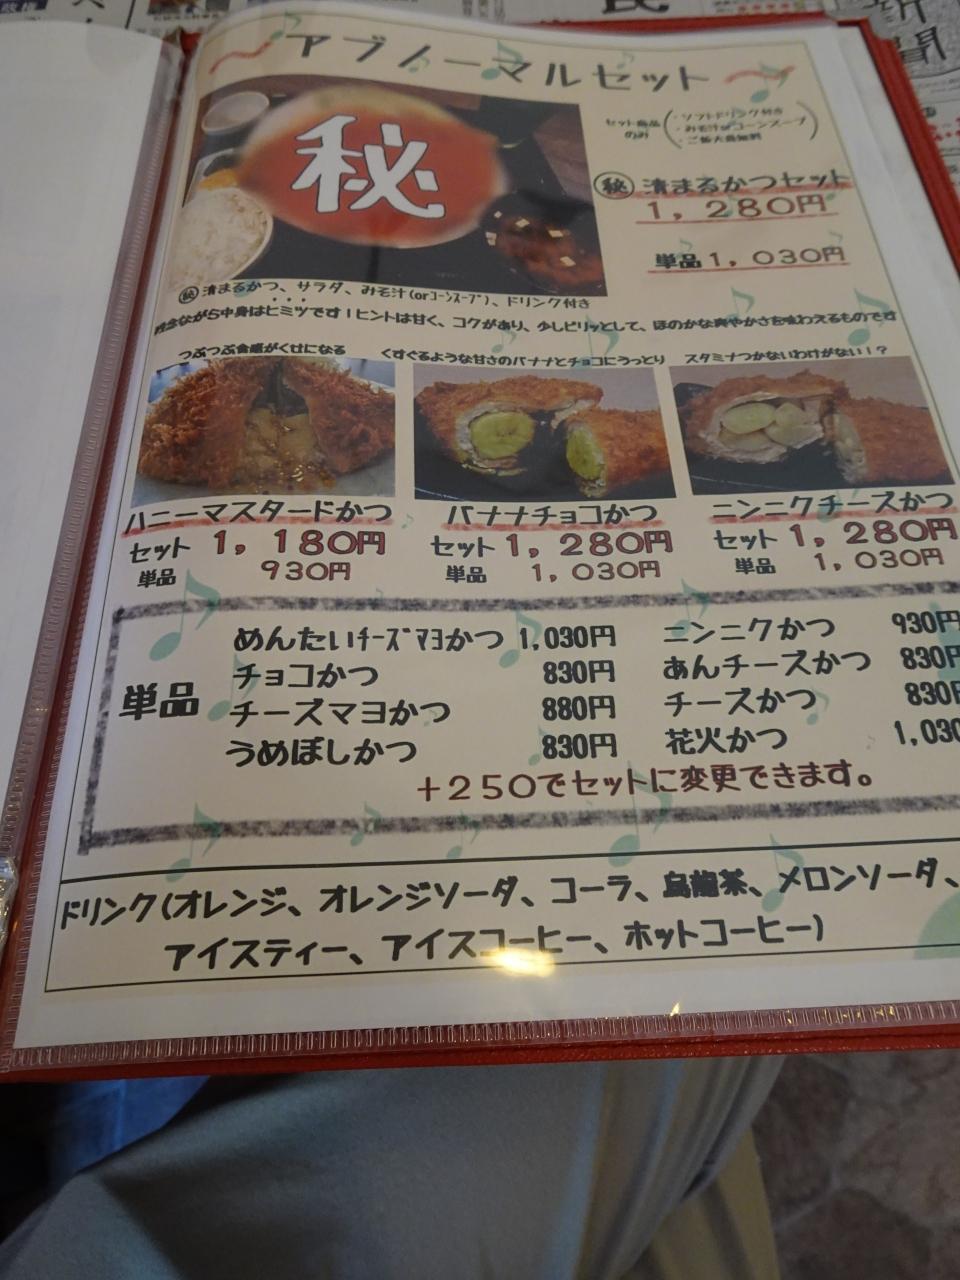 アブノーマルセット
セット商品のみ
・ソフトドリンク付き
・みそ汁orコーンスープ
・ご飯大盛無料
秘
㊙清まるかつセット
1,280円
単品1,030円
㊙清まるかつ、サラダ、みそ汁(orコーンスープ)、ドリンク付き
残念ながら中身はヒミツです!ヒントは甘く、コクがあり、少しピリッとして、ほのかな爽やかさを味わえるものです
つぶつぶ食感がくせになる
くすぐるような甘さのバナナとチョコにうっとり
スタミナつかないわけがない!?
ハニーマスタードかつ
セット 1,180円
単品 930円
バナナチョコかつ
セット 1,280円
単品 1,030円
ニンニクチーズかつ
セット 1,280円
単品 1,030円
単品
めんたいチーズマヨかつ 1,030円
チョコかつ 830円
チーズマヨかつ 880円
うめぼしかつ 830円
ニンニクかつ 930円
あんチーズかつ 830円
チーズかつ 830
花火かつ 1,030
+250でセットに変更できます。
ドリンク(オレンジ、オレンジソーダ、コーラ、烏龍茶、メロンソーダ、
アイスティー、アイスコーヒー、ホットコーヒー)